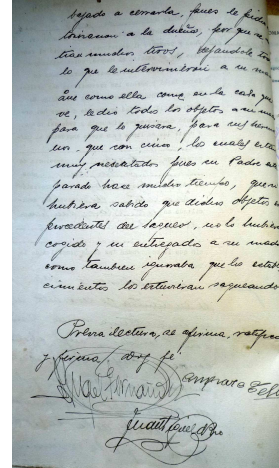 bajado a cerrarla, pues le pidio
a la dueña, por que se
tran muchos tiros,
lo que le intervinieron a su
que como ella come en la casa
ve, le dio todos los objetos a su
para que le guisara, para sus her
nos, que son cinco, los cuales estan
muy necesitados pues su Padre
parado hace mucho tiempo, que
hubiera sabido que dichos objetos
procedentes del saqueo, no lo hubiera
cogido y ni entregados a su madre
como tambien ignoraba que los estable
cimientos los estuvieran saqueando
Previa lectura, se afirma, ratifica
y firma, doy fe
Fernandez Amparo
Juan